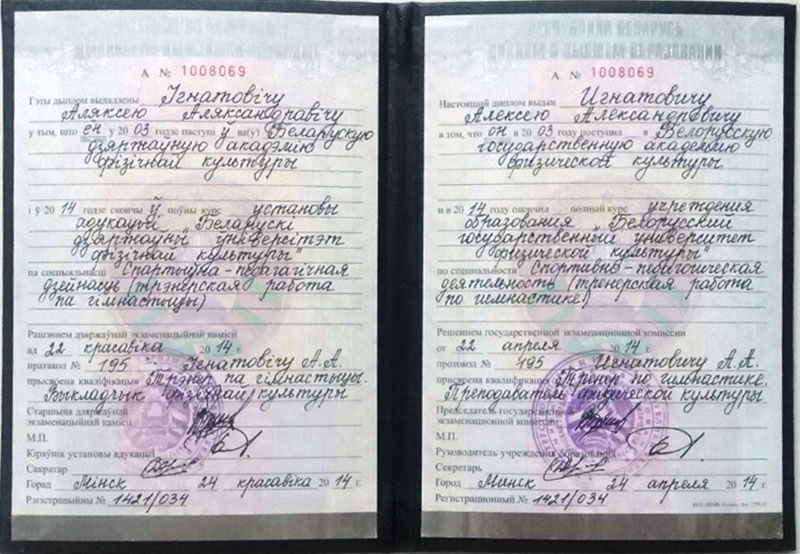 А № 1008069
Гэты дыплом выдадзены Ігнатовічу
Аляксею Аляксандравічу
у тым, што ён у 2003 годзе паступіў у ва(ў) Беларускую
дзяржаўную акадэмію
фізічнай культуры
і ў 2014 годзе скончыў поўны курс установы
адукацыі „Беларускі
дзяржаўны універсітэт
фізічнай культуры"
па спецыяльнасці Спартыўна-педагагічная
дзейнасць (трэнерская работа
па гімнастыцы)
Рашэннем дзяржаўнай экзаменацыйнай камісіі
ад 22 красавіка 2014 г.
пратакол № 195 Ігнатовічу А.А.
прысвоена кваліфікацыя Трэнер па гімнастыцы.
Выкладчык фізічнай культуры
Старшыня дзяржаўнай
экзаменацыйнай камісіі
М.П.
Кіраўнік установы адукацыі
Сакратар
Горад Мінск 24 красавіка 2014 г.
Рэгістрацыйны № 1421/034
А № 1008069
Настоящий диплом выдан Игнатовичу
Алексею Александровичу
в том, что он в 2003 году поступил в Белорусскую
государственную академию
физической культуры
и в 2014 году окончил полный курс учреждения
образования „Белорусский
государственный университет
физической культуры"
по специальности Спортивно-педагогическая
деятельность (тренерская работа
по гимнастике)
Решением государственной экзаменационной комиссии
от 22 апреля 2014 г.
протокол № 195 Игнатовичу А.А.
присвоена квалификация Тренер по гимнастике.
Преподаватель физической культуры
Председатель государственной
экзаменационной комиссии
М.П.
Руководитель учреждения образования
Секретарь
Город Минск 24 апреля 2014 г.
Регистрационный № 1421/034